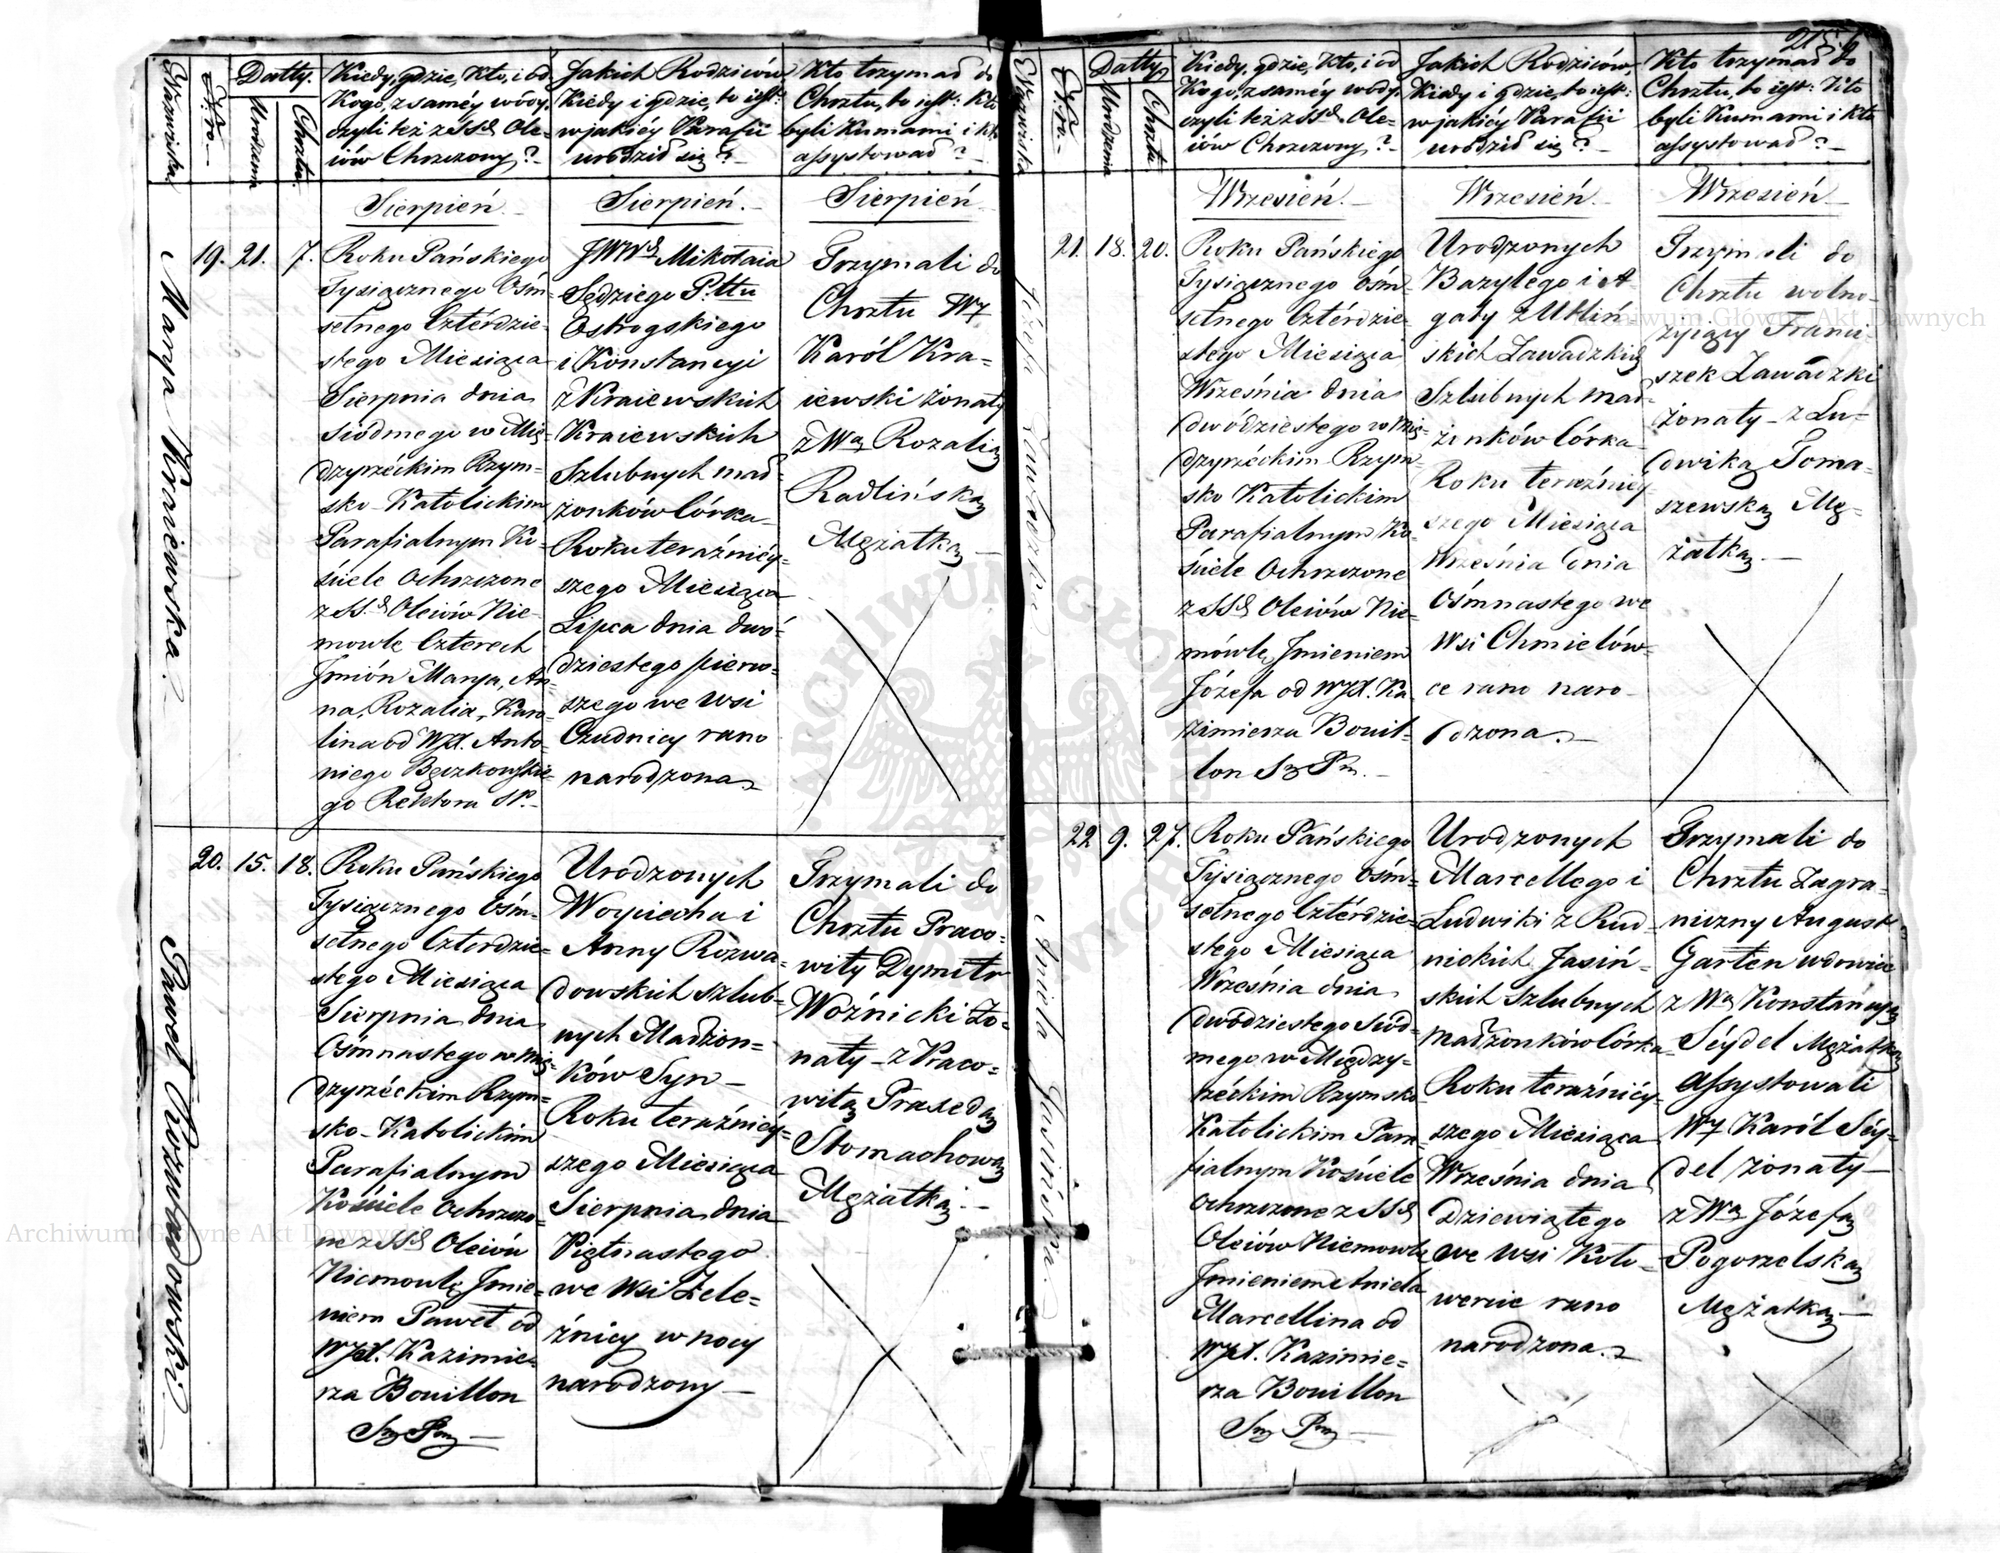 Nazwiska.
Nro.
Datty.
Urodzenia
Chrztu.
Kiedy, gdzie, Kto, i od
Kogo, z saméy wódy,
czyli też z SSch Ole-
iów Chrzczony?
Jakich Rodziców
Kiedy i gdzie, to iest:
w jakiéy Parafii
urodził się?
Kto trzymał do
Chrztu, to iest: Kto
byli Kumami i kto
assystował?
Sierpień
Sierpień.
Sierpień
Marya Kraiewska.
19. 21. 7.
Roku Pańskiego
Tysiącznego Ośm-
setnego Cztérdzie-
stego Miesiąca
Sierpnia dnia
siódmego w Mię-
dzyrzéckim Rzym-
sko-Katolickim
Parafialnym Ko-
ściele Ochrzczone
z SSch Oleiów Nie-
mowlę Czterech
Jmión Marya, An-
na, Rozalia, Karo-
lina od WJX. Anto-
niego Bęczkowskie-
go Rektora SP.
JWWch Mikołaia
Sędziego P:ttu
Ostrogskiego
i Konstancyi
z Kraiewskich
Kraiewskich
Szlubnych mał-
żonków Córka
Roku teraźniéy-
szego Miesiąca
Lipca dnia dwó-
dziestego pierw-
szego we wsi
Czudnicy rano
narodzona.
Trzymali do
Chrztu WJ
Karól Kra-
iewski żonaty
z Wą Rozalią
Radlińską
Mężatką
20. 15. 18.
Paweł Rozwadowski.
Roku Pańskiego
Tysiącznego Ośm-
setnego Czterdzie-
stego Miesiąca
Sierpnia dnia
Ośmnastego w Mię-
dzyrzéckim Rzym-
sko-Katolickim
Parafialnym
Kościele Ochrzczo-
ne z SSch Oleiów
Niemowlę Jmie-
niem Paweł od
WJX. Kazimie-
rza Bouillon
Urodzonych
Woyciecha i
Anny Rozwa-
dowskich szlub-
nych Małżon-
ków Syn
Roku teraźniéy-
szego Miesiąca
Sierpnia dnia
Piętnastego
we Wsi Zele-
źnicy w nocy
narodzony
Trzymali do
Chrztu Praco-
wity Dymitr
Woźnicki Żo-
naty z Praco-
witą Praxedą
Stomachową
Mężatką.
Nazwiska
Nro.
Datty
Urodzenia
Chrztu.
Kiedy, gdzie, Kto, i od
Kogo, z saméy wody,
czyli też z SSch Ole-
iów Chrzczony?
Jakich Rodziców,
Kiedy i gdzie, to iest:
w jakiéy Parafii
urodził się?
Kto trzymał do
Chrztu, to iest: Kto
byli Kumami i kto
assystował?
Wrzesień.
Wrzesień.
Wrzesień
Józefa Zawadzka
21. 18. 20.
Roku Pańskiego
Tysiącznego Ośm-
setnego Cztérdzie-
stego Miesiąca
Września dnia
dwódziestego w Mię-
dzyrzéckim Rzym-
sko Katolickim
Parafialnym Ko-
ściele Ochrzczone
z SSch Oleiów Nie-
mówlę Jmieniem
Józefa od WJX. Ka
zimierza Bouil-
lon
Urodzonych
Bazylego i A
gaty z Ulin-
skich Zawadzkich
Szlubnych mał-
żonków Córka
Roku teraźniéy
szego Miesiąca
Września dnia
Ośmnastego we
Wsi Chmielów-
ce rano naro-
dzona.
Trzymali do
Chrztu wolno-
żyiący Franci-
szek Zawadzki
żonaty z Lu-
dwiką Toma-
szewską Mę-
żatką.
22 9. 27.
Aniela Jasińska.
Roku Pańskiego
Tysiącznego Ośm-
setnego Cztérdzie-
stego Miesiąca
Września dnia
dwódziestego siód-
mego w Między-
rzéckim Rzymsko
Katolickim Para
fialnym Kościele
Ochrzczone z SSch
Oleiów Niemowlę
Jmieniem Aniela
Marcellina od
WJX. Kazimie-
rza Bouillon
Urodzonych
Marcellego i
Ludwiki z Rud-
nickich Jasiń-
skich Szlubnych
małżonków Córka
Roku teraźniéy-
szego Miesiąca
Września dnia
Dziewiątego
we wsi Koło-
wercie rano
narodzona.
Trzymali do
Chrztu Zagra-
niczny August
Garten wdowiec
z Wą Konstancyą
Séydel Mężatką
Assystowali
WJ Karól Séy-
del żonaty
z Wą Józefą
Pogorzelską
Mężatką.
Archiwum Główne Akt Dawnych
Archiwum Główne Akt Dawnych